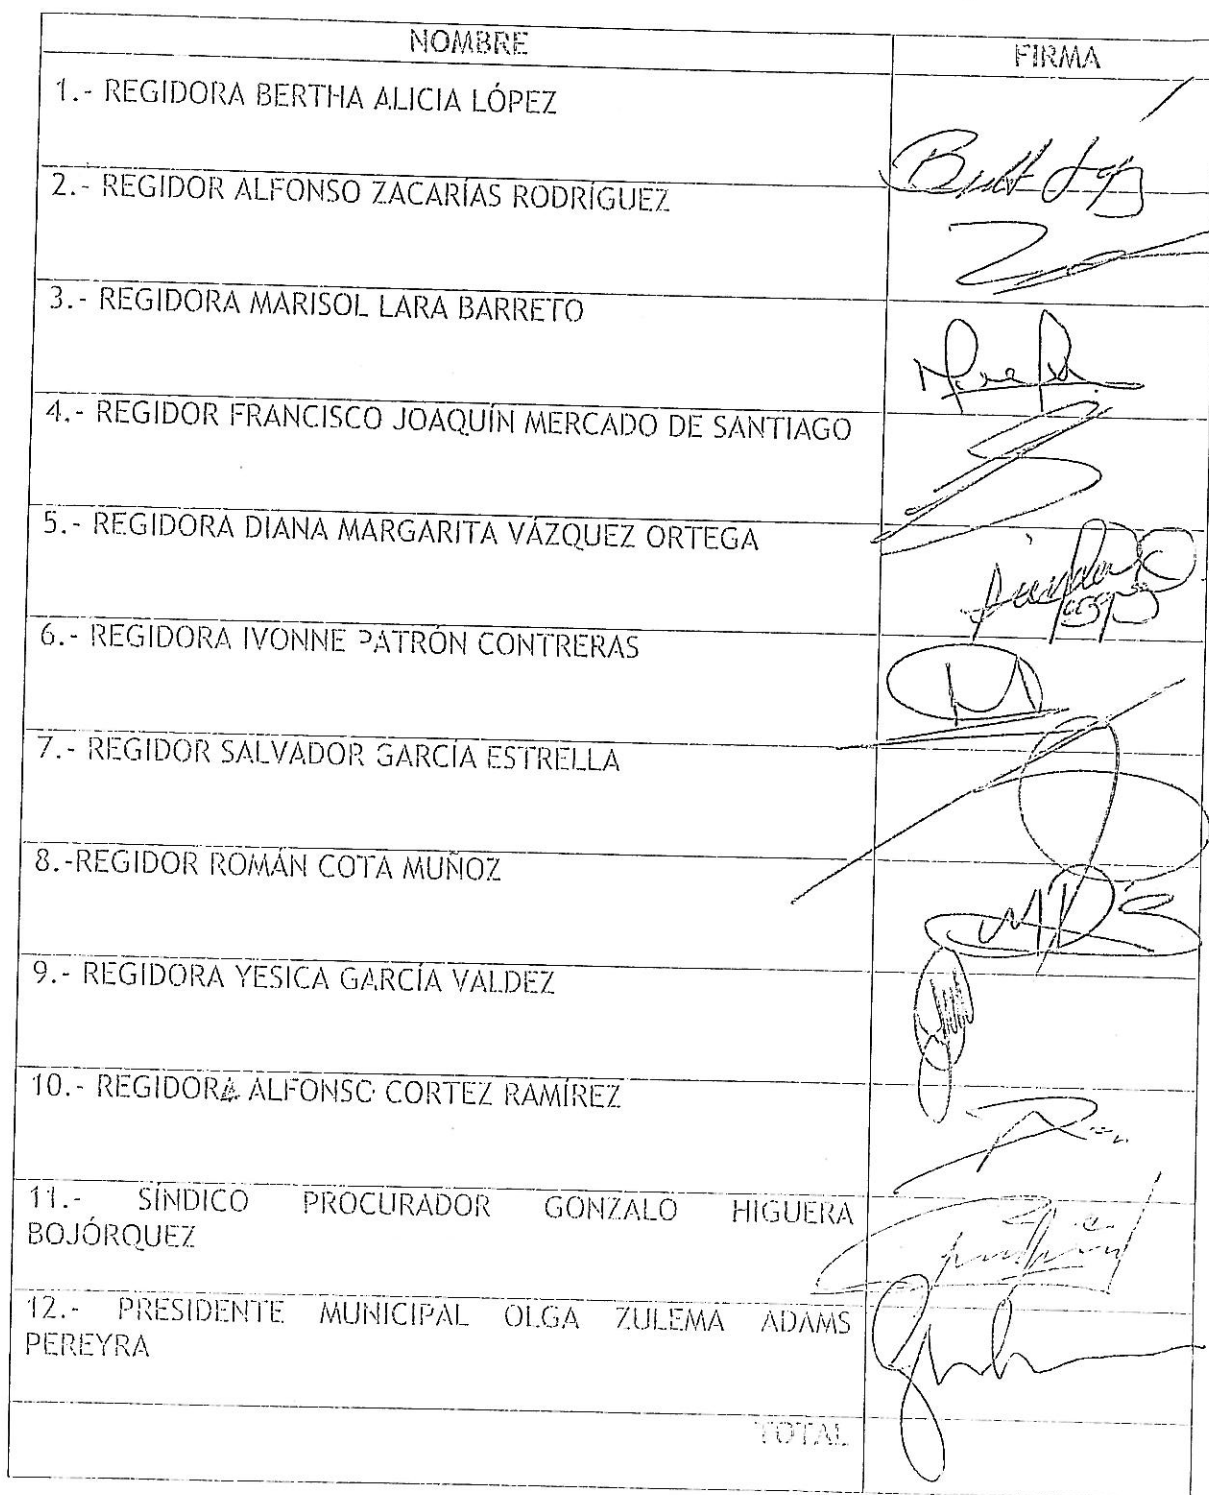 NOMBRE FIRMA
1.- REGIDORA BERTHA ALICIA LÓPEZ
2.- REGIDOR ALFONSO ZACARÍAS RODRÍGUEZ
3.- REGIDORA MARISOL LARA BARRETO
4.- REGIDOR FRANCISCO JOAQUÍN MERCADO DE SANTIAGO
5.- REGIDORA DIANA MARGARITA VÁZQUEZ ORTEGA
6.- REGIDORA IVONNE PATRÓN CONTRERAS
7.- REGIDOR SALVADOR GARCÍA ESTRELLA
8.-REGIDOR ROMÁN COTA MUÑOZ
9.- REGIDORA YESICA GARCÍA VALDEZ
10.- REGIDORA ALFONSO CORTEZ RAMÍREZ
11.- SÍNDICO PROCURADOR GONZALO HIGUERA
BOJÓRQUEZ
12.- PRESIDENTE MUNICIPAL OLGA ZULEMA ADAMS
PEREYRA
TOTAL